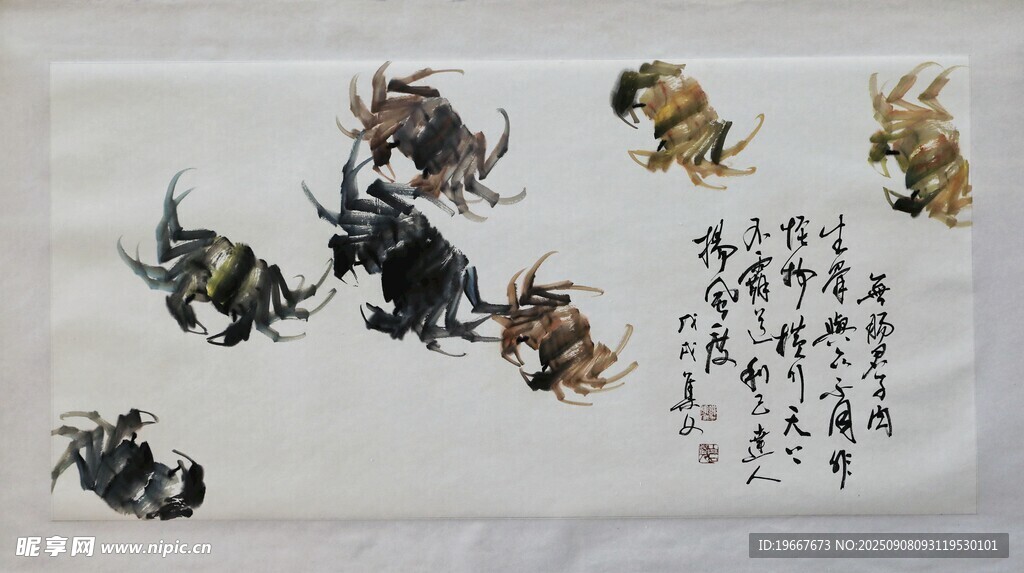 無腸君子肉
生骨與众不同非
怪物横行天下
不霸道利己達人
揚風度
戊戌集父
昵享网 www.nipic.cn
ID:19667673 NO:20250908093119530101